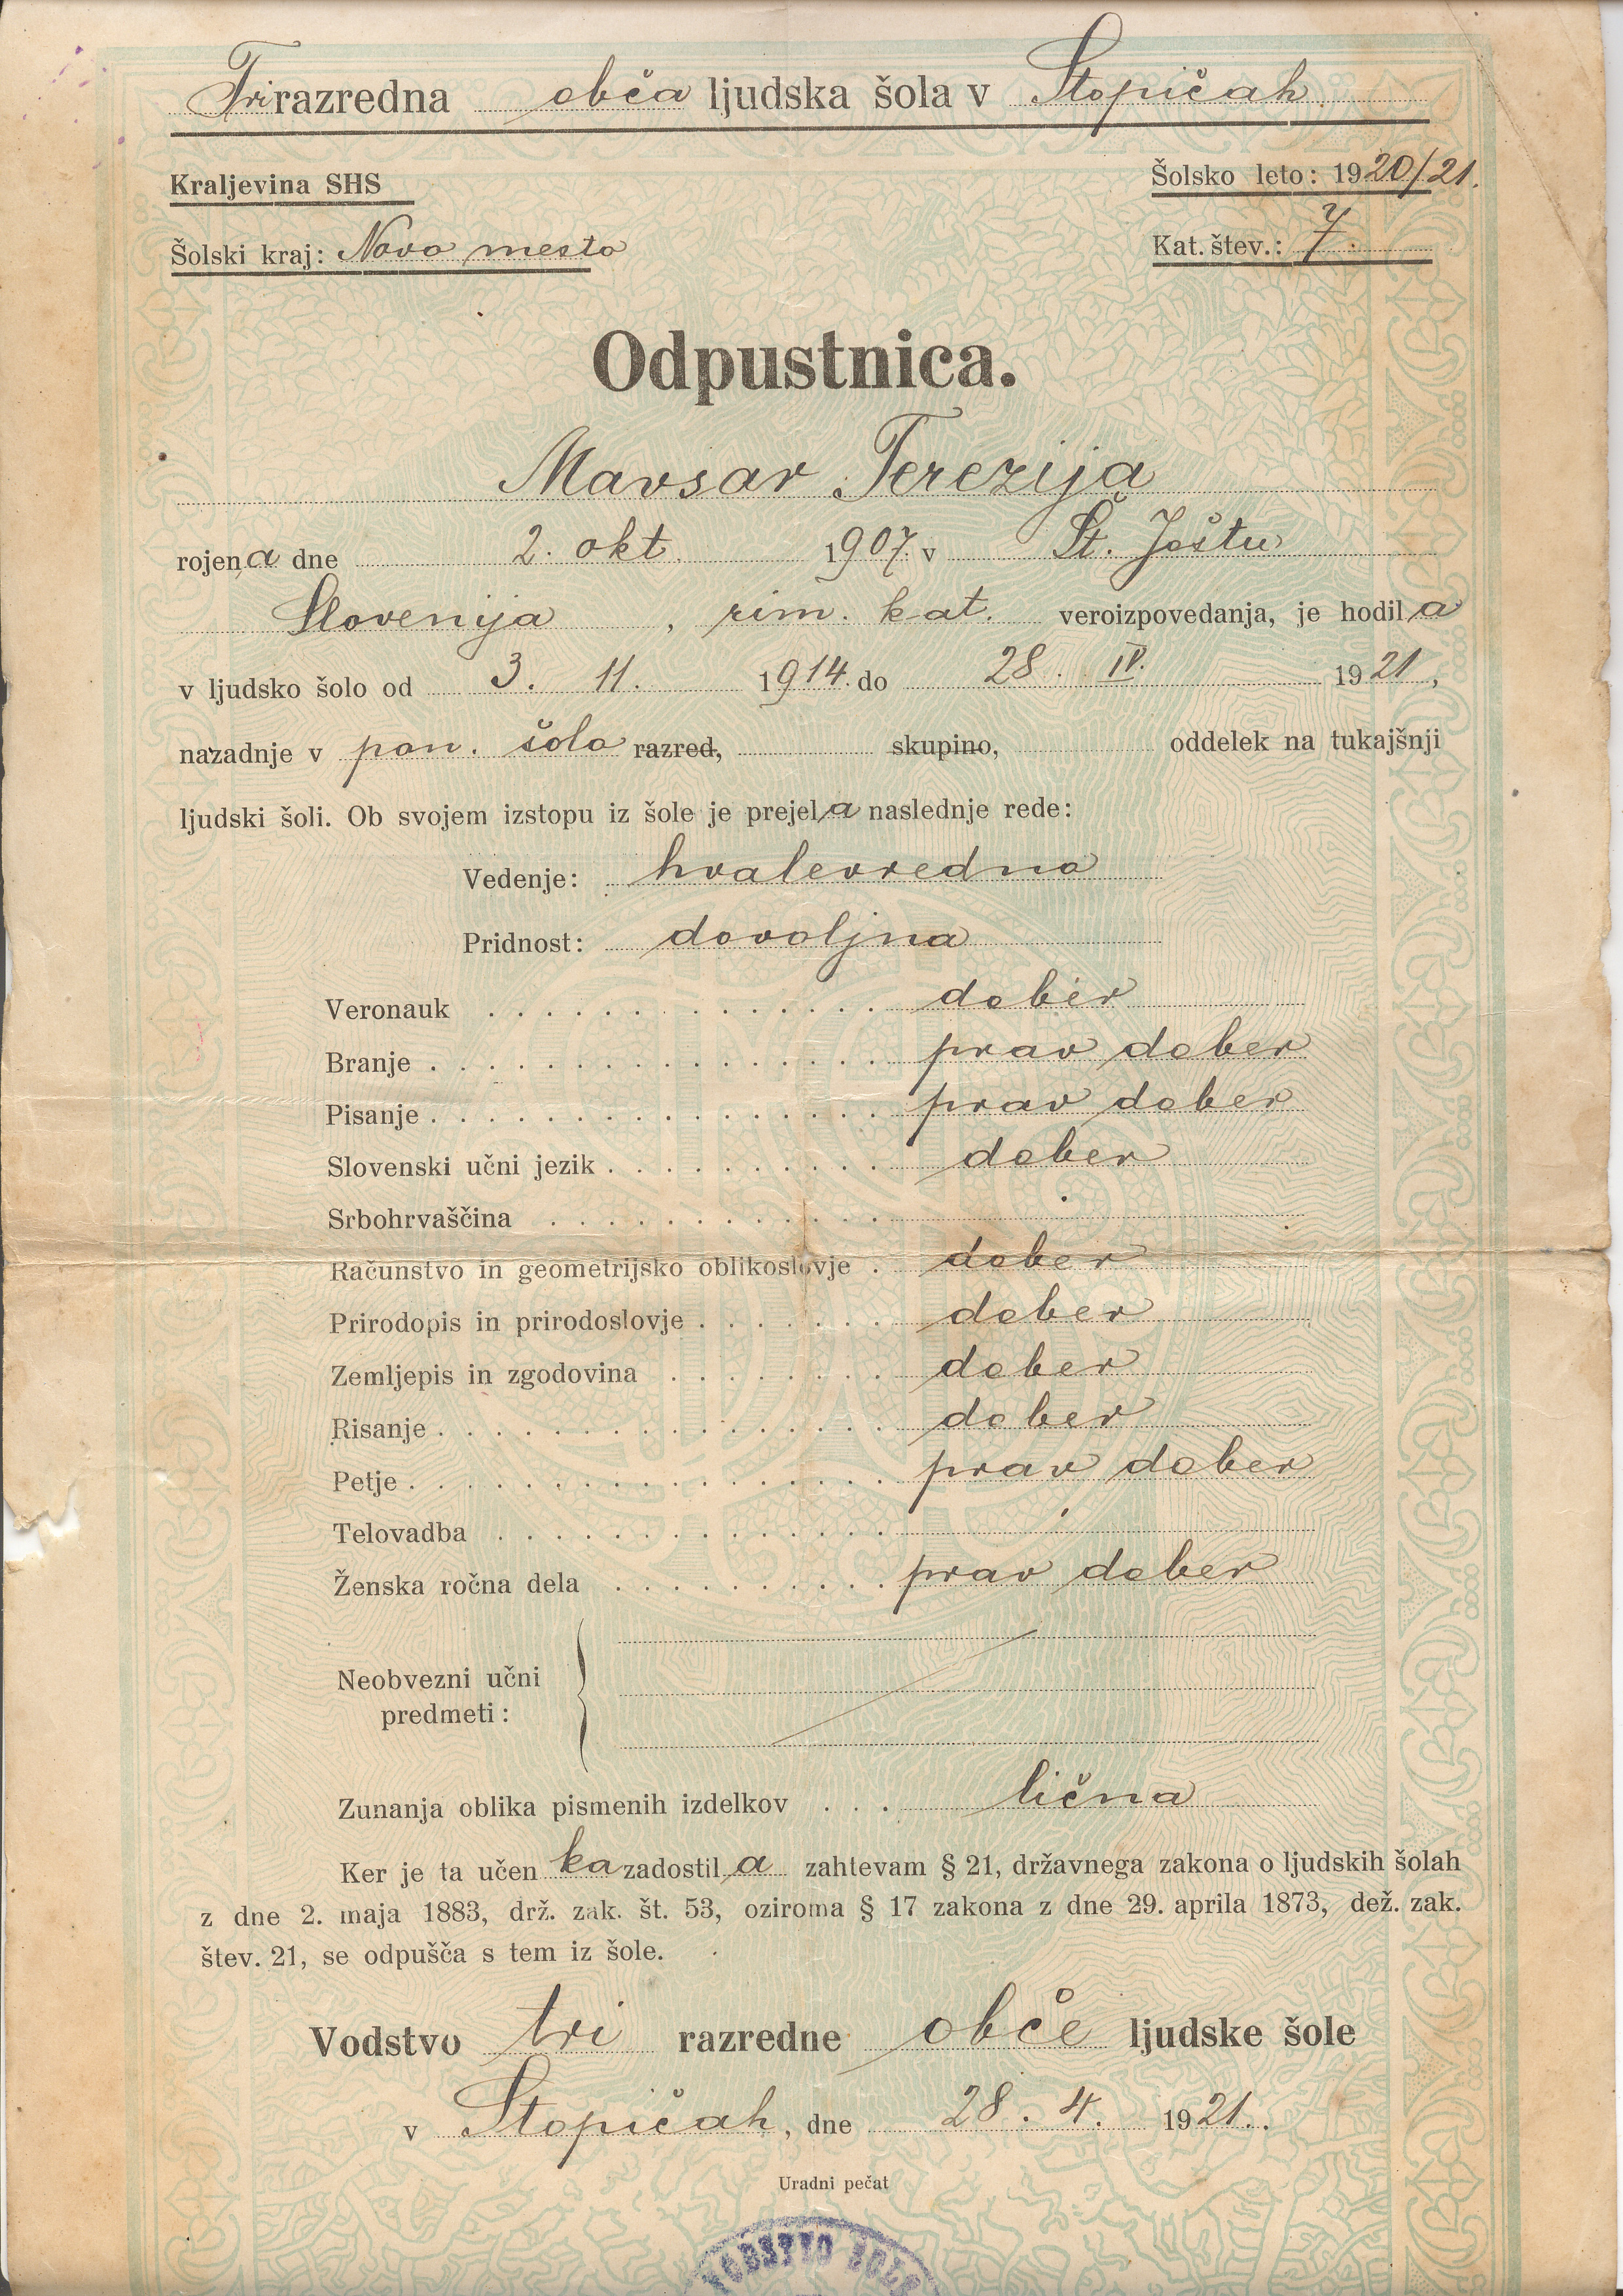 Trirazredna obča ljudska šola v Stopičah.
Kraljevina SHS
Šolsko leto: 1920/21.
Šolski kraj: Novo mesto
Kat. štev.: 7.
Odpustnica.
Mavsar Terezija
rojena dne 2. okt. 1907. v Št. Joštu
Slovenija, rim. kat. veroizpovedanja, je hodila
v ljudsko šolo od 3. 11. 1914. do 28. IV. 1921,
nazadnje v pon. šolo razred, skupino, oddelek na tukajšnji
ljudski šoli. Ob svojem izstopu iz šole je prejela naslednje rede:
Vedenje: hvalevredno
Pridnost: dovoljna
Veronauk dober
Branje prav dober
Pisanje prav dober
Slovenski učni jezik dober
Srbohrvaščina
Računstvo in geometrijsko oblikoslovje dober
Prirodopis in prirodoslovje dober
Zemljepis in zgodovina dober
Risanje dober
Petje prav dober
Telovadba
Ženska ročna dela prav dober
Neobvezni učni
predmeti:
Zunanja oblika pismenih izdelkov lična
Ker je ta učenka zadostila zahtevam § 21, državnega zakona o ljudskih šolah
z dne 2. maja 1883, drž. zak. št. 53, oziroma § 17 zakona z dne 29. aprila 1873, dež. zak.
štev. 21, se odpušča s tem iz šole.
Vodstvo tri razredne obče ljudske šole
v Stopičah, dne 28. 4. 1921.
Uradni pečat
VODSTVO ŠOLE